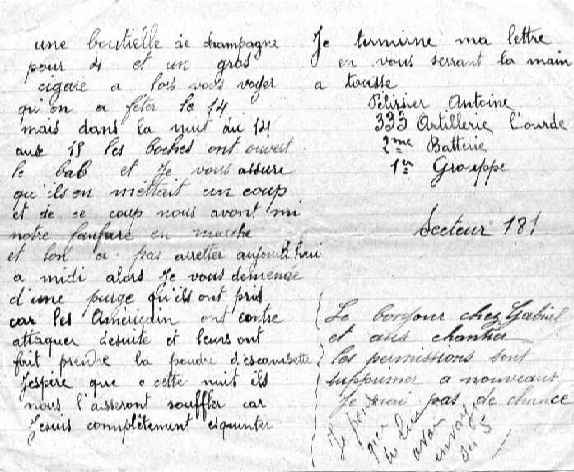 une bouteille de champagne
pour 4 et un gros
cigare a lors vous voyer
qu'on a fêter le 14
mais dans la nuit du 14
aux 15 les boches ont ouvert
le bal et Je vous assure
qu'ils en mettait un coup
et de ce coup nous avont mi
notre fanfare en marche
et lon a pas arretter aujourd'hui
a midi alors Je vous demende
d'une purge qu'ils ont pris
car les Americain ont contre
attaquer desuite et leurs ont
fait prendre la poudre d'escampette
Jespère que cette nuit ils
nous l'aisseront souffler car
Jesuis complètement
Je termine ma lettre
en vous serrant la main
a tousse
Antoine
333 Artillerie Lourde
2me Batterie
1er Grouppe
Secteur 181
Le bonjour chez Gabriel
et aus chantier
les permissions sont
supprimer a nouveaux
Je pas de chance